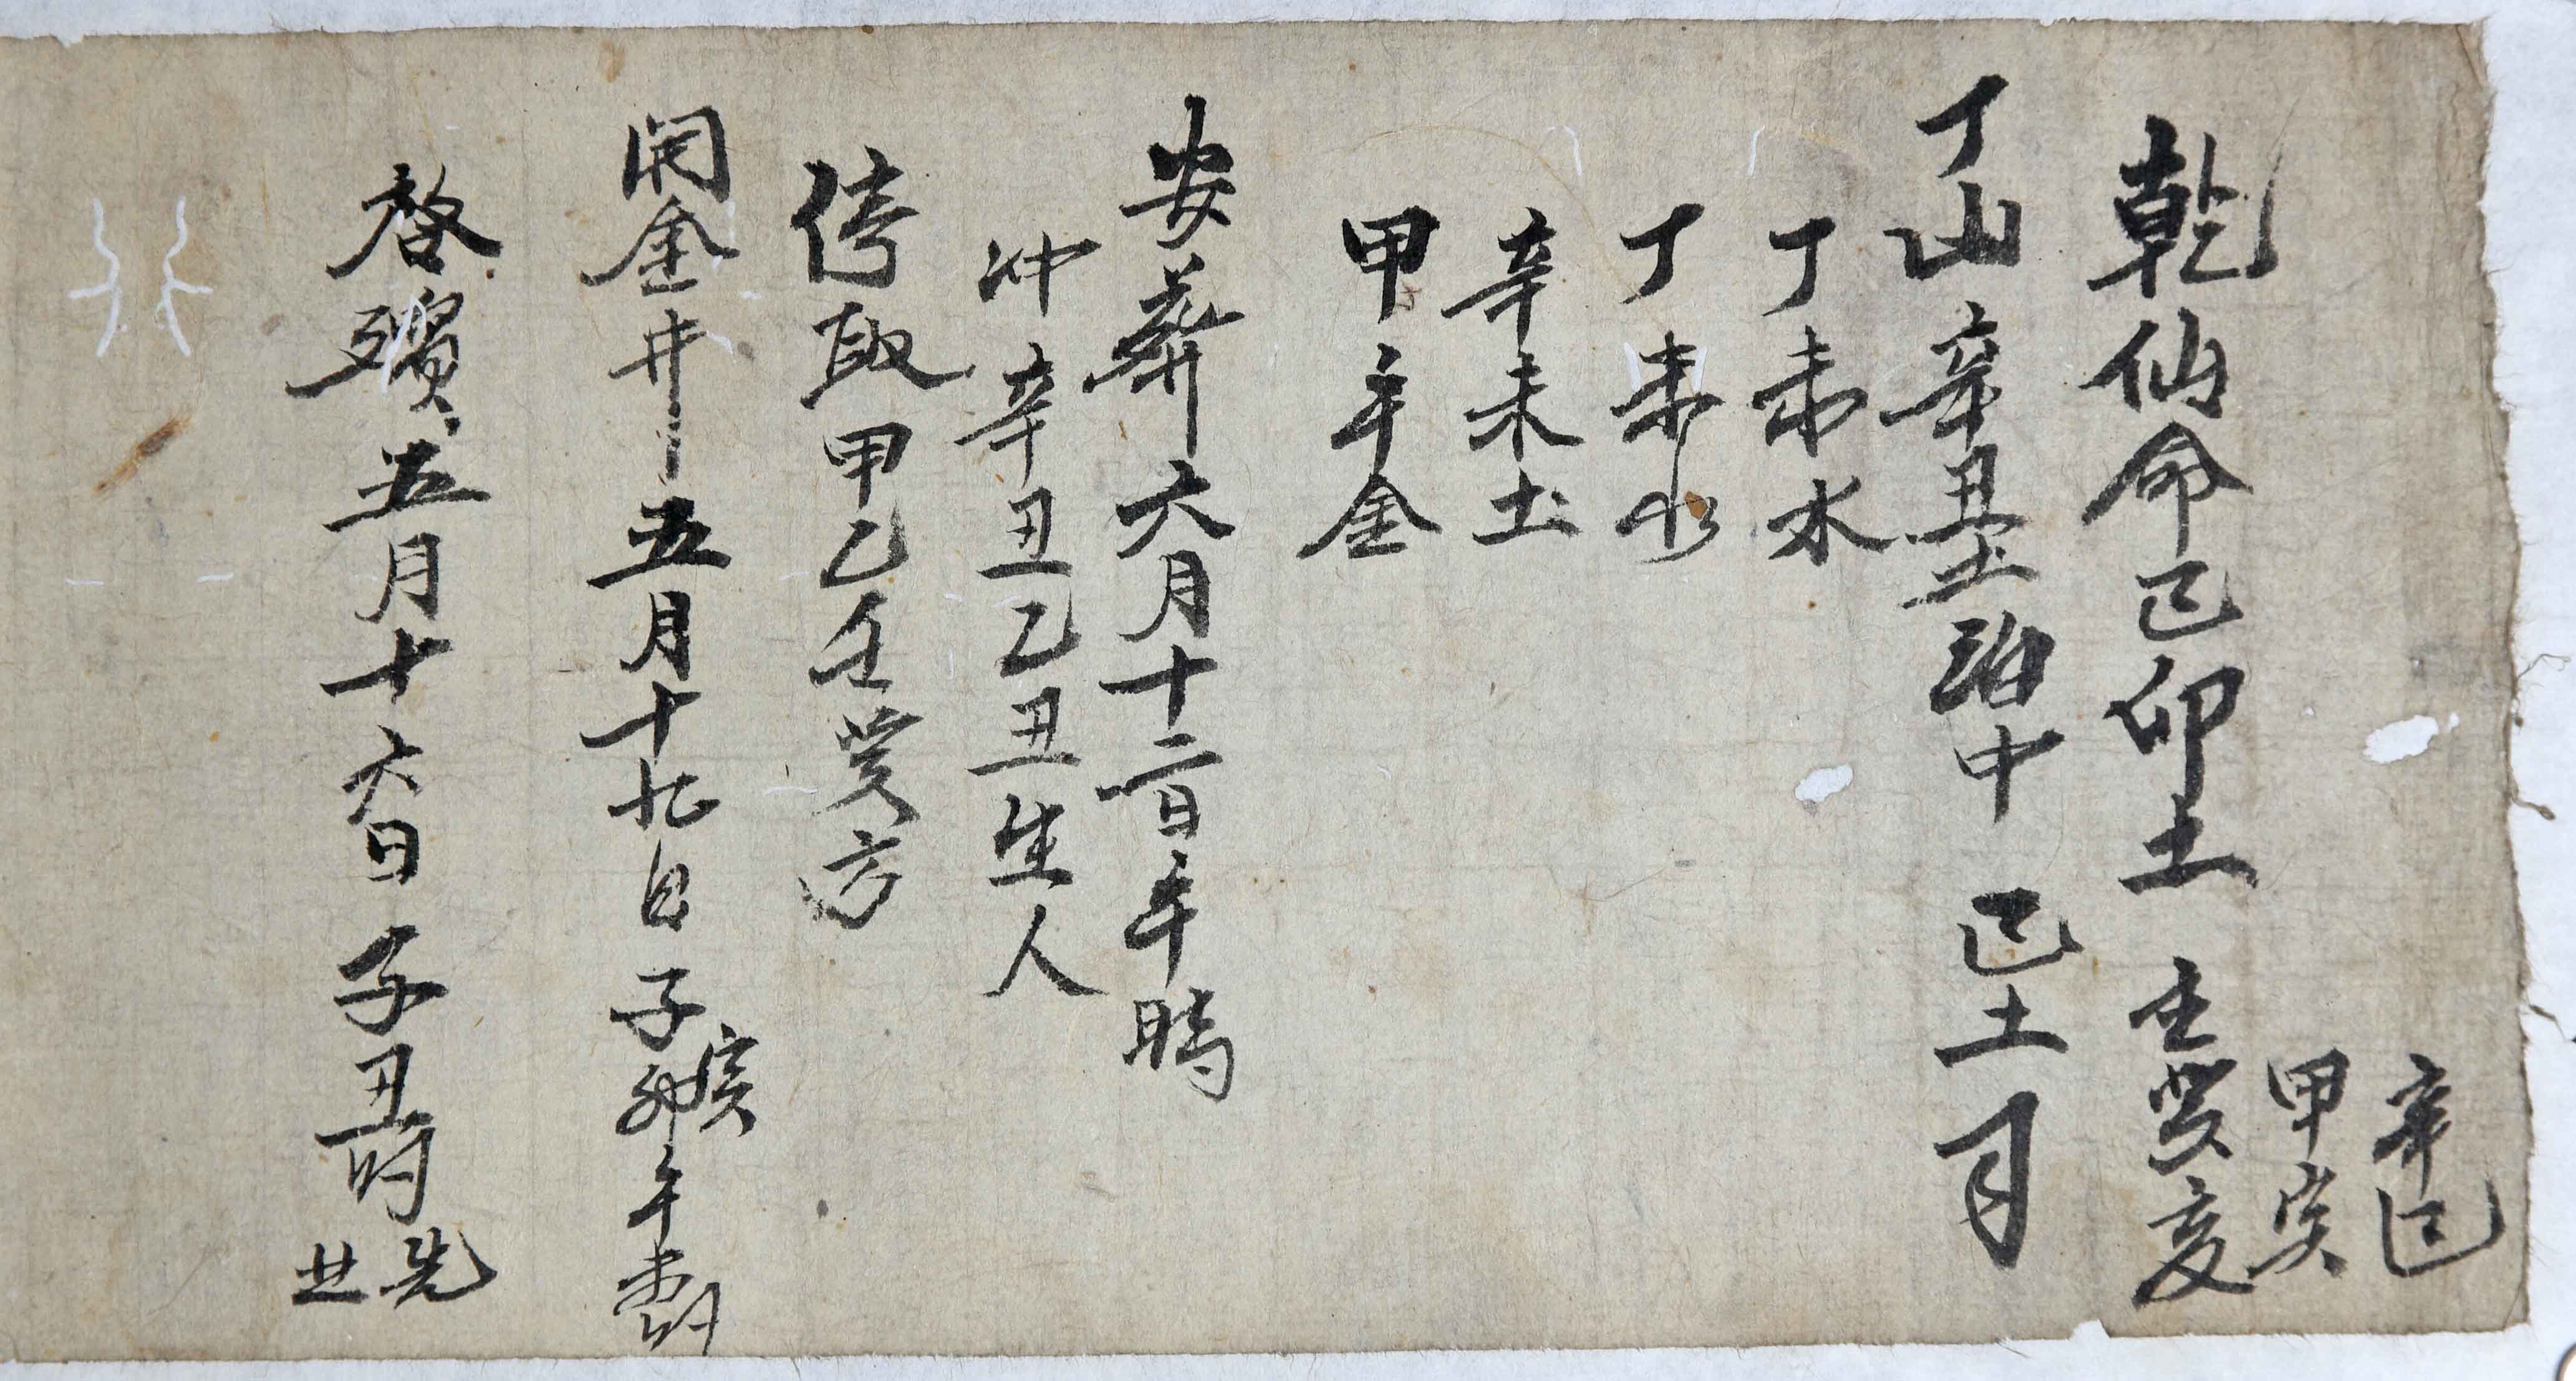 辛巳
甦寅
乾仙命己卯土 壬癸亥
丁山辛丑土 治中 己土 月
丁未水
丁未水
辛未土
甲午金
安葬六月十二日午時
冲辛丑乙丑生人
停取甲乙壬癸方
開金井五月十九日子寅卯午未時
啓殯五月十六日子丑時先